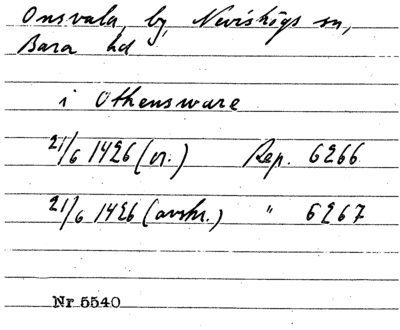 Onsvala, by, Nevishögs sn,
Bara hd
i Othensware
21/6 1426 (or.) Rep. 6266
21/6 1426 (avskr.) " 6267
Nr 5540